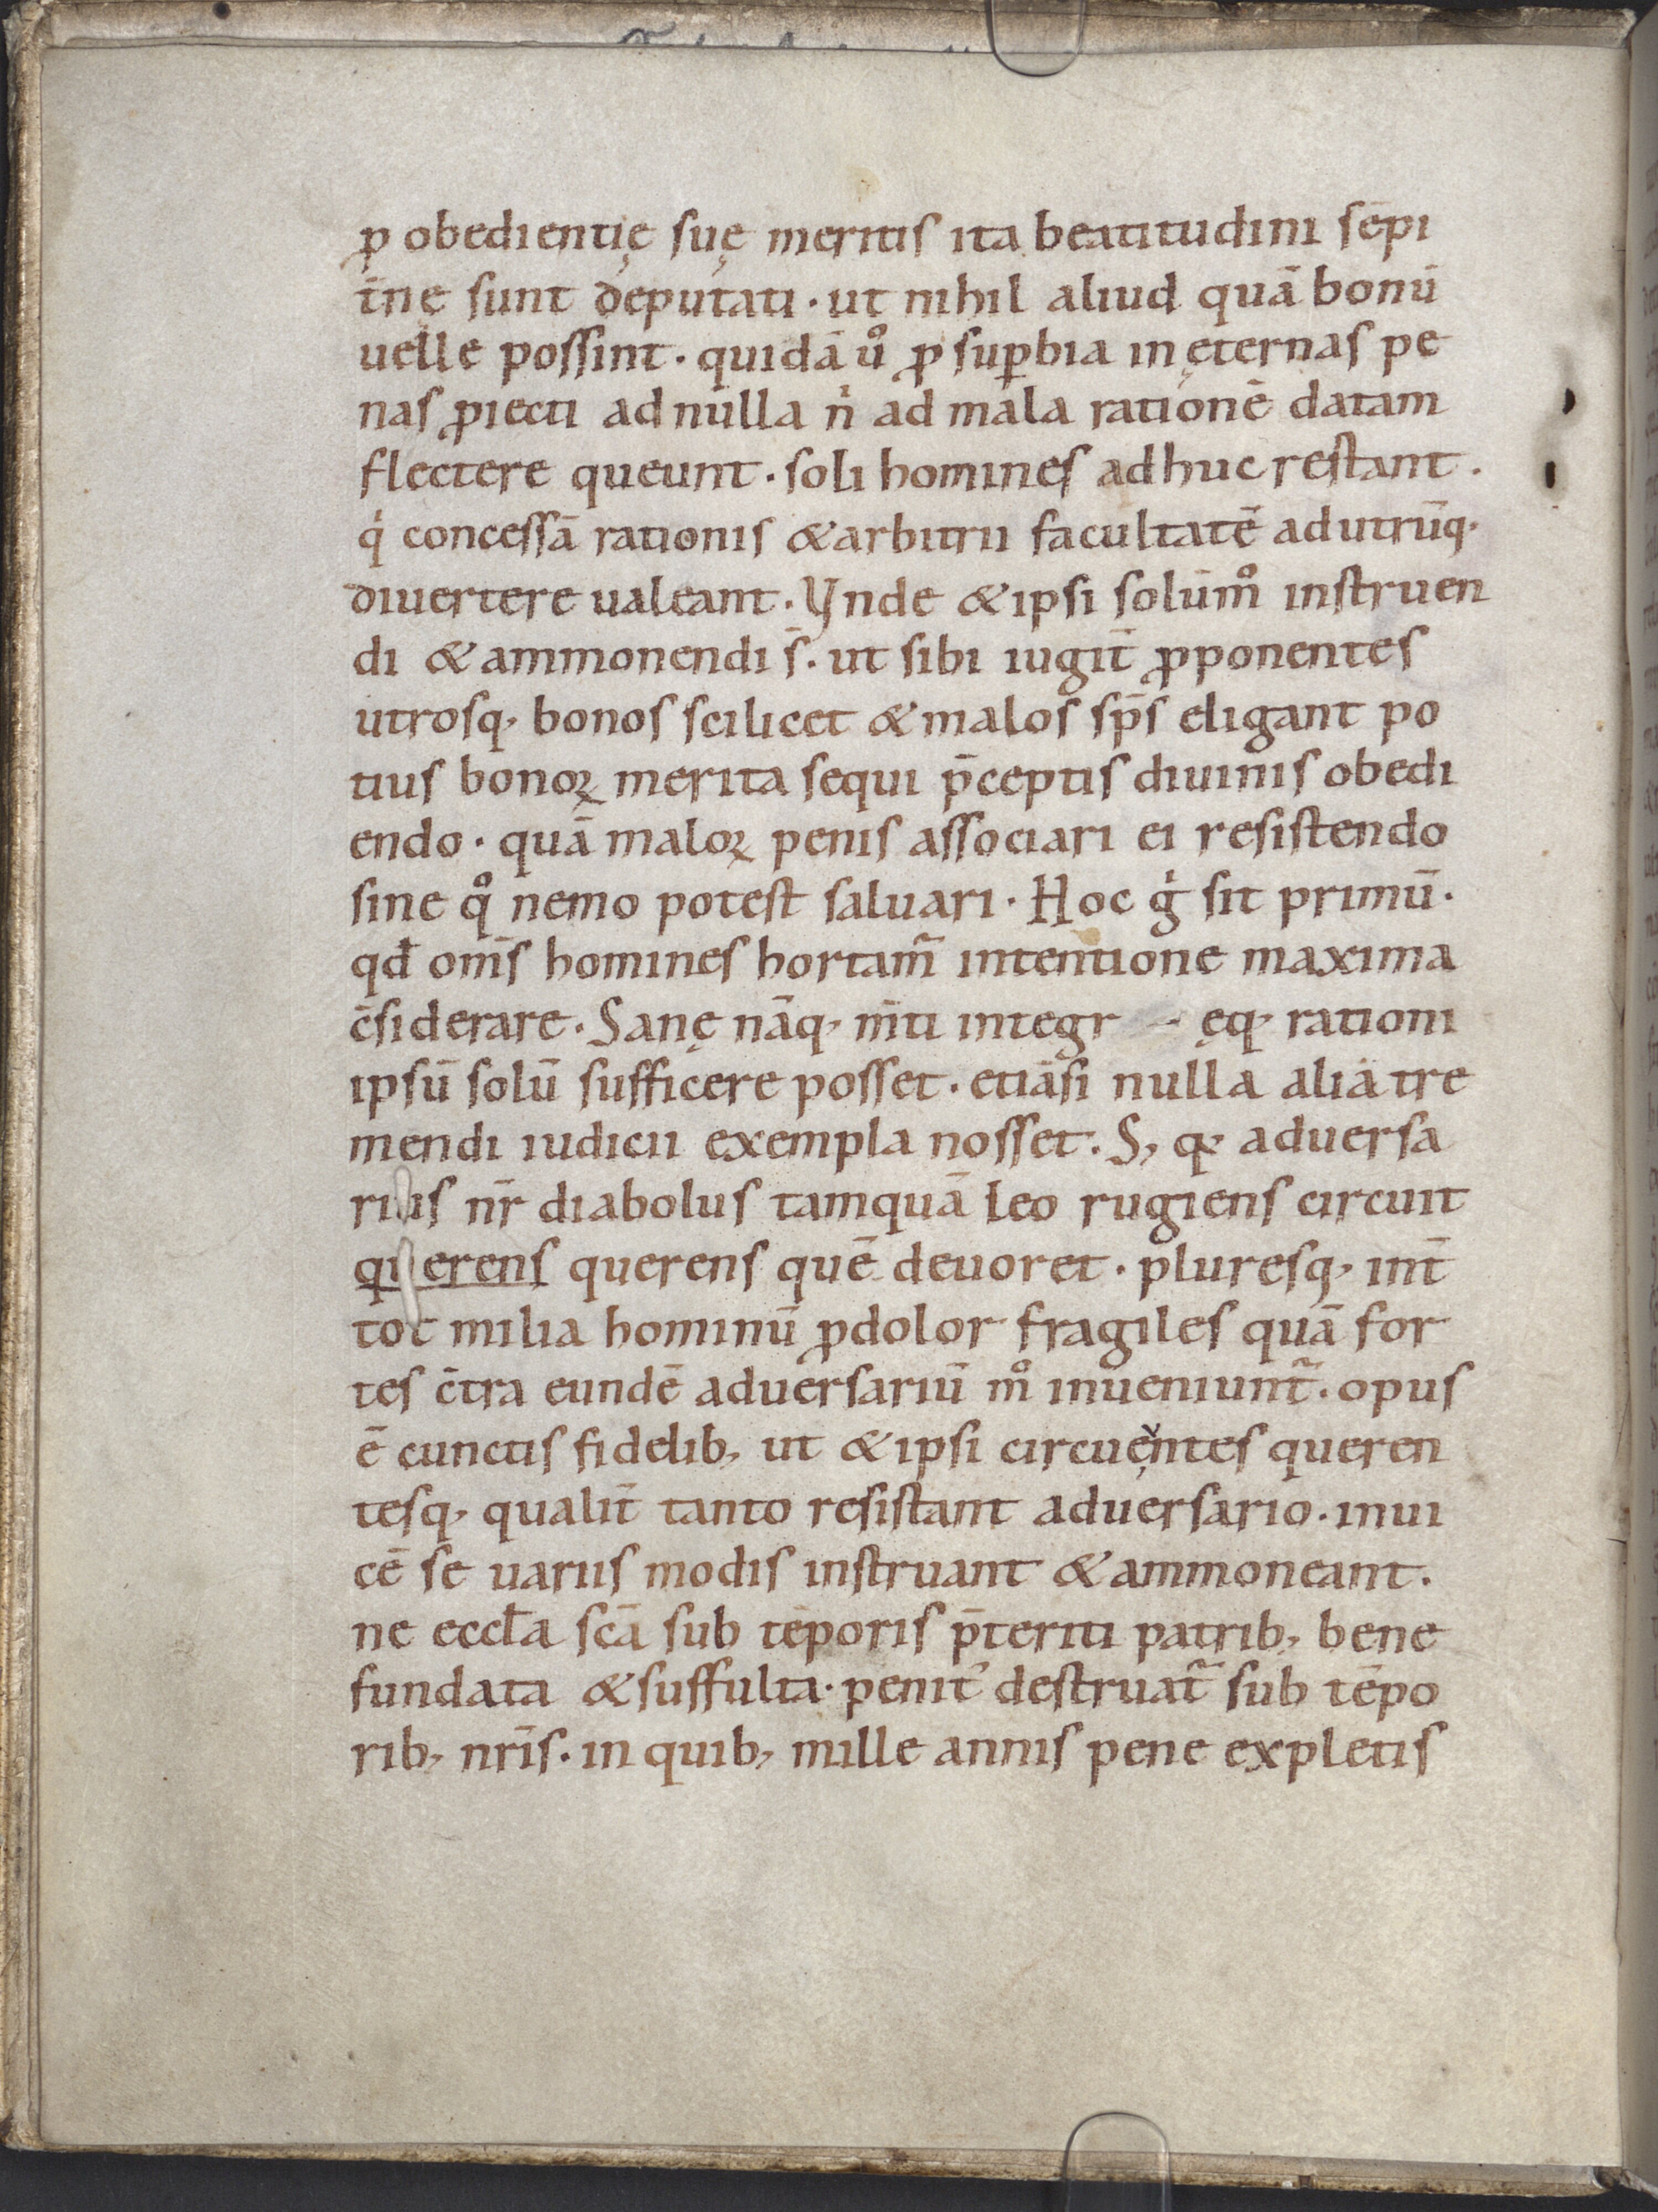 ꝓ obedientię suę meritis ita beatitudini sēpi
t̄nę sunt deputati · ut nihil aliud quā bonū
uelle possint · quidā uͦ ꝓ suꝑbia in ęternas pe
nas ꝓiecti ad nulla nͥ ad mala rationē datam
flectere queunt · soli homines adhuc restant .
qͥ concessā rationis & arbitrii facultatē ad utrūq·
diuertere ualeant . Vnde & ipsi solūmͦ instruen
di & ammonendi s̄ . ut sibi iugit̄ ꝓponentes
utrosq· bonos scilicet & malos sp̄s eligant po
tius bonoꝝ merita sequi p̄ceptis diuinis obedi
endo · quā maloꝝ penis associari ei resistendo
sine qͦ nemo potest saluari · Hoc gͥ sit primū .
qđ om̄s homines hortam̃ intentione maxima
c̄siderare . Sanę nāq· m̄ti integr ęq· rationi
ipsū solū sufficere posset . etiāsi nulla alia tre
mendi iudicii exempla nosset . S, qꝫ aduersa
rius nr̄ diabolus tamquā leo rugiens circuit
querens querens quē deuoret . pluresq· int̄
tot milia hominū ꝓdolor fragiles quā for
tes c̄tra eundē aduersariū mͦ inueniunt̃ . opus
ē cunctis fidelib, ut & ipsi circuentes queren
tesq· qualit̄ tanto resistant aduersario . inui
cē se uariis modis instruant & ammoneant .
ne eccƚa scā sub tēporis p̄teriti patrib, bene
fundata & suffulta · penit᾿ destruat̃ sub tēpo
rib, nr̄is . in quib, mille annis pene expletis